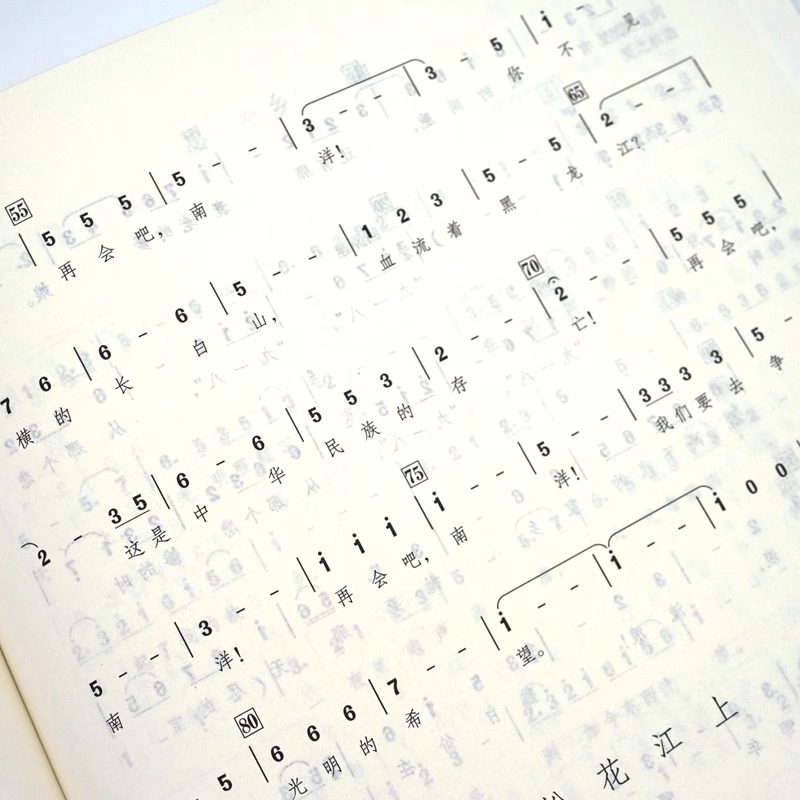 55 65
| 5 5 5 | 5 - - | 3 - - | 3 - 5 | i -
再 会 吧, 南 洋! 你 不 见
7 6 | 6 - 6 | 5 - - | 1 2 3 | 5 - 5 | 2 - - |
横 的 长 白 山, 血 流 着 黑 龙 江?
70
2 - 3 5 | 6 - 6 | 5 5 3 | 2 - - | 2 - - | 5 5 5 |
这 是 中 华 民 族 的 存 亡! 再 会 吧,
75
5 - - | 3 - - | i i i | i - - | 5 - - | 3 3 3 3 | 5 -
南 洋! 再 会 吧, 南 洋! 我 们 要 去 争
80
5 | 6 6 6 | 7 - - | i - - | i - - | i 0 0 |
光 明 的 希 望。
花 江 上